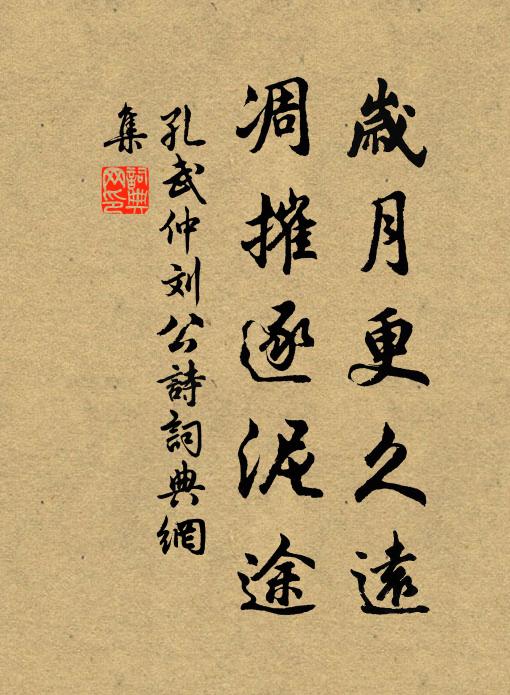 歲月更久遠
凋摧逐泥途
孔武仲刘公詩詞典網
集
詞典
网印